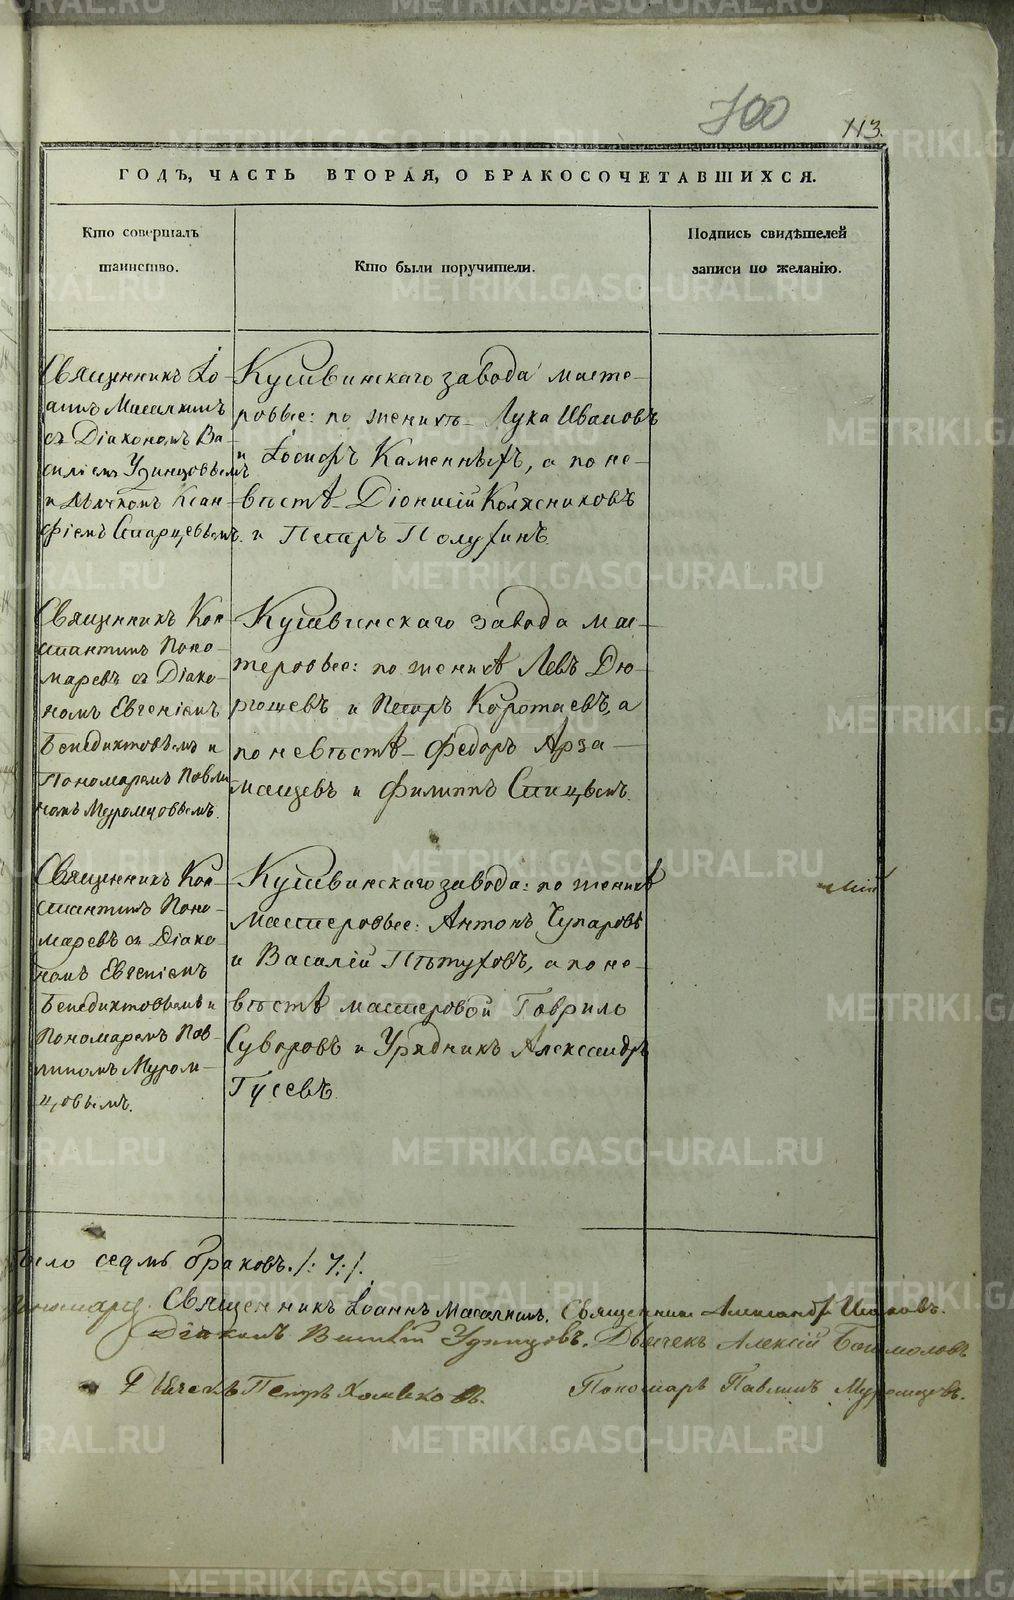 700
113.
ГОДЪ, ЧАСТЬ ВТОРАЯ, О БРАКОСОЧЕТАВШИХСЯ.
Кто совершалъ
таинство.
Кто были поручители.
Подпись свидѣтелей
записи по желанію.
Священникъ Іо-
аннъ Масалкинъ
съ Діакономъ Ва-
силіемъ Удинцовымъ
и Дьячкомъ Ксан-
фіемъ Старцевымъ.
Кушвинскаго завода масте-
ровые: по женихѣ Лука Ивановъ
и Іосифъ Каменныхъ, а по не-
вѣстѣ Діонисій Колясниковъ
и Петръ Полухинъ.
Священникъ Кон-
стантинъ Поно-
маревъ съ Діако-
номъ Евгеніемъ
Бенедиктовымъ и
Пономаремъ Павли-
номъ Муромцовымъ.
Кушвинскаго завода мас-
теровые: по женихѣ Левъ Дю-
рющевъ и Петръ Коротаевъ, а
по невѣстѣ Федоръ Арза-
масцевъ и Филиппъ
Священникъ Кон-
стантинъ Поно-
маревъ съ Діако-
номъ Евгеніемъ
Бенедиктовымъ и
Пономаремъ Пав-
линомъ Муром-
цовымъ.
Кушвинскаго завода: по женихѣ
Мастеровые: Антонъ Чупаровъ
и Василій Пѣтуховъ, а по не-
вѣстѣ мастеровой Гаврило
Суворовъ и Урядникъ Александръ
Гусевъ.
было седмь браковъ /:7:/.
Священникъ Іоаннъ Масалкинъ. Священникъ Александръ
Діаконъ Василій Удинцовъ. Дьячекъ Алексій Богомоловъ
Дьячекъ Петръ Хомяковъ. Пономарь Павлинъ Муромцовъ.
METRIKI.GASO-URAL.RU